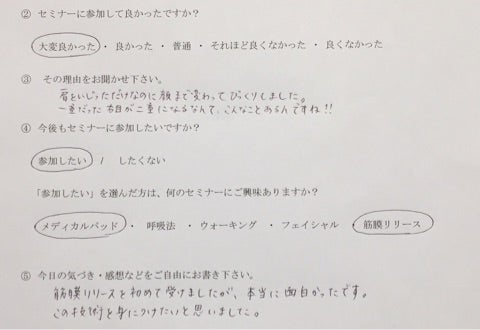 ② セミナーに参加して良かったですか？
大変良かった ・ 良かった ・ 普通 ・ それほど良くなかった ・ 良くなかった
③ その理由をお聞かせ下さい。
肩をいじっただけなのに顔まで変わってびっくりしました。
一重だった右目が二重になるなんて、こんなことあるんですね!!
④ 今後もセミナーに参加したいですか？
参加したい / したくない
「参加したい」を選んだ方は、何のセミナーにご興味ありますか？
メディカルパッド ・ 呼吸法 ・ ウォーキング ・ フェイシャル ・ 筋膜リリース
⑤ 今日の気づき・感想などをご自由にお書き下さい。
筋膜リリースを初めて受けましたが、本当に面白かったです。
この技術を身につけたいと思いました。